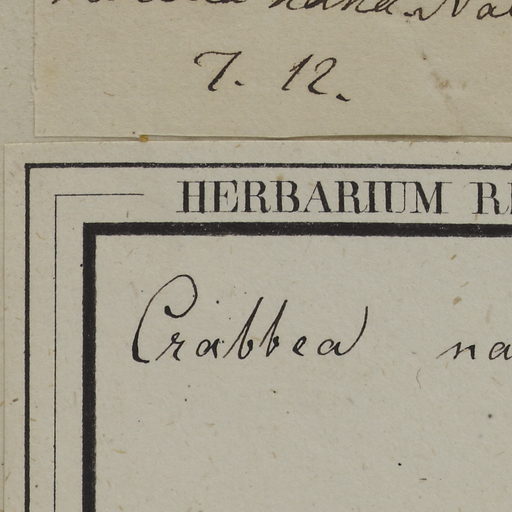 nana
7. 12.
HERBARIUM R
Crabbea na